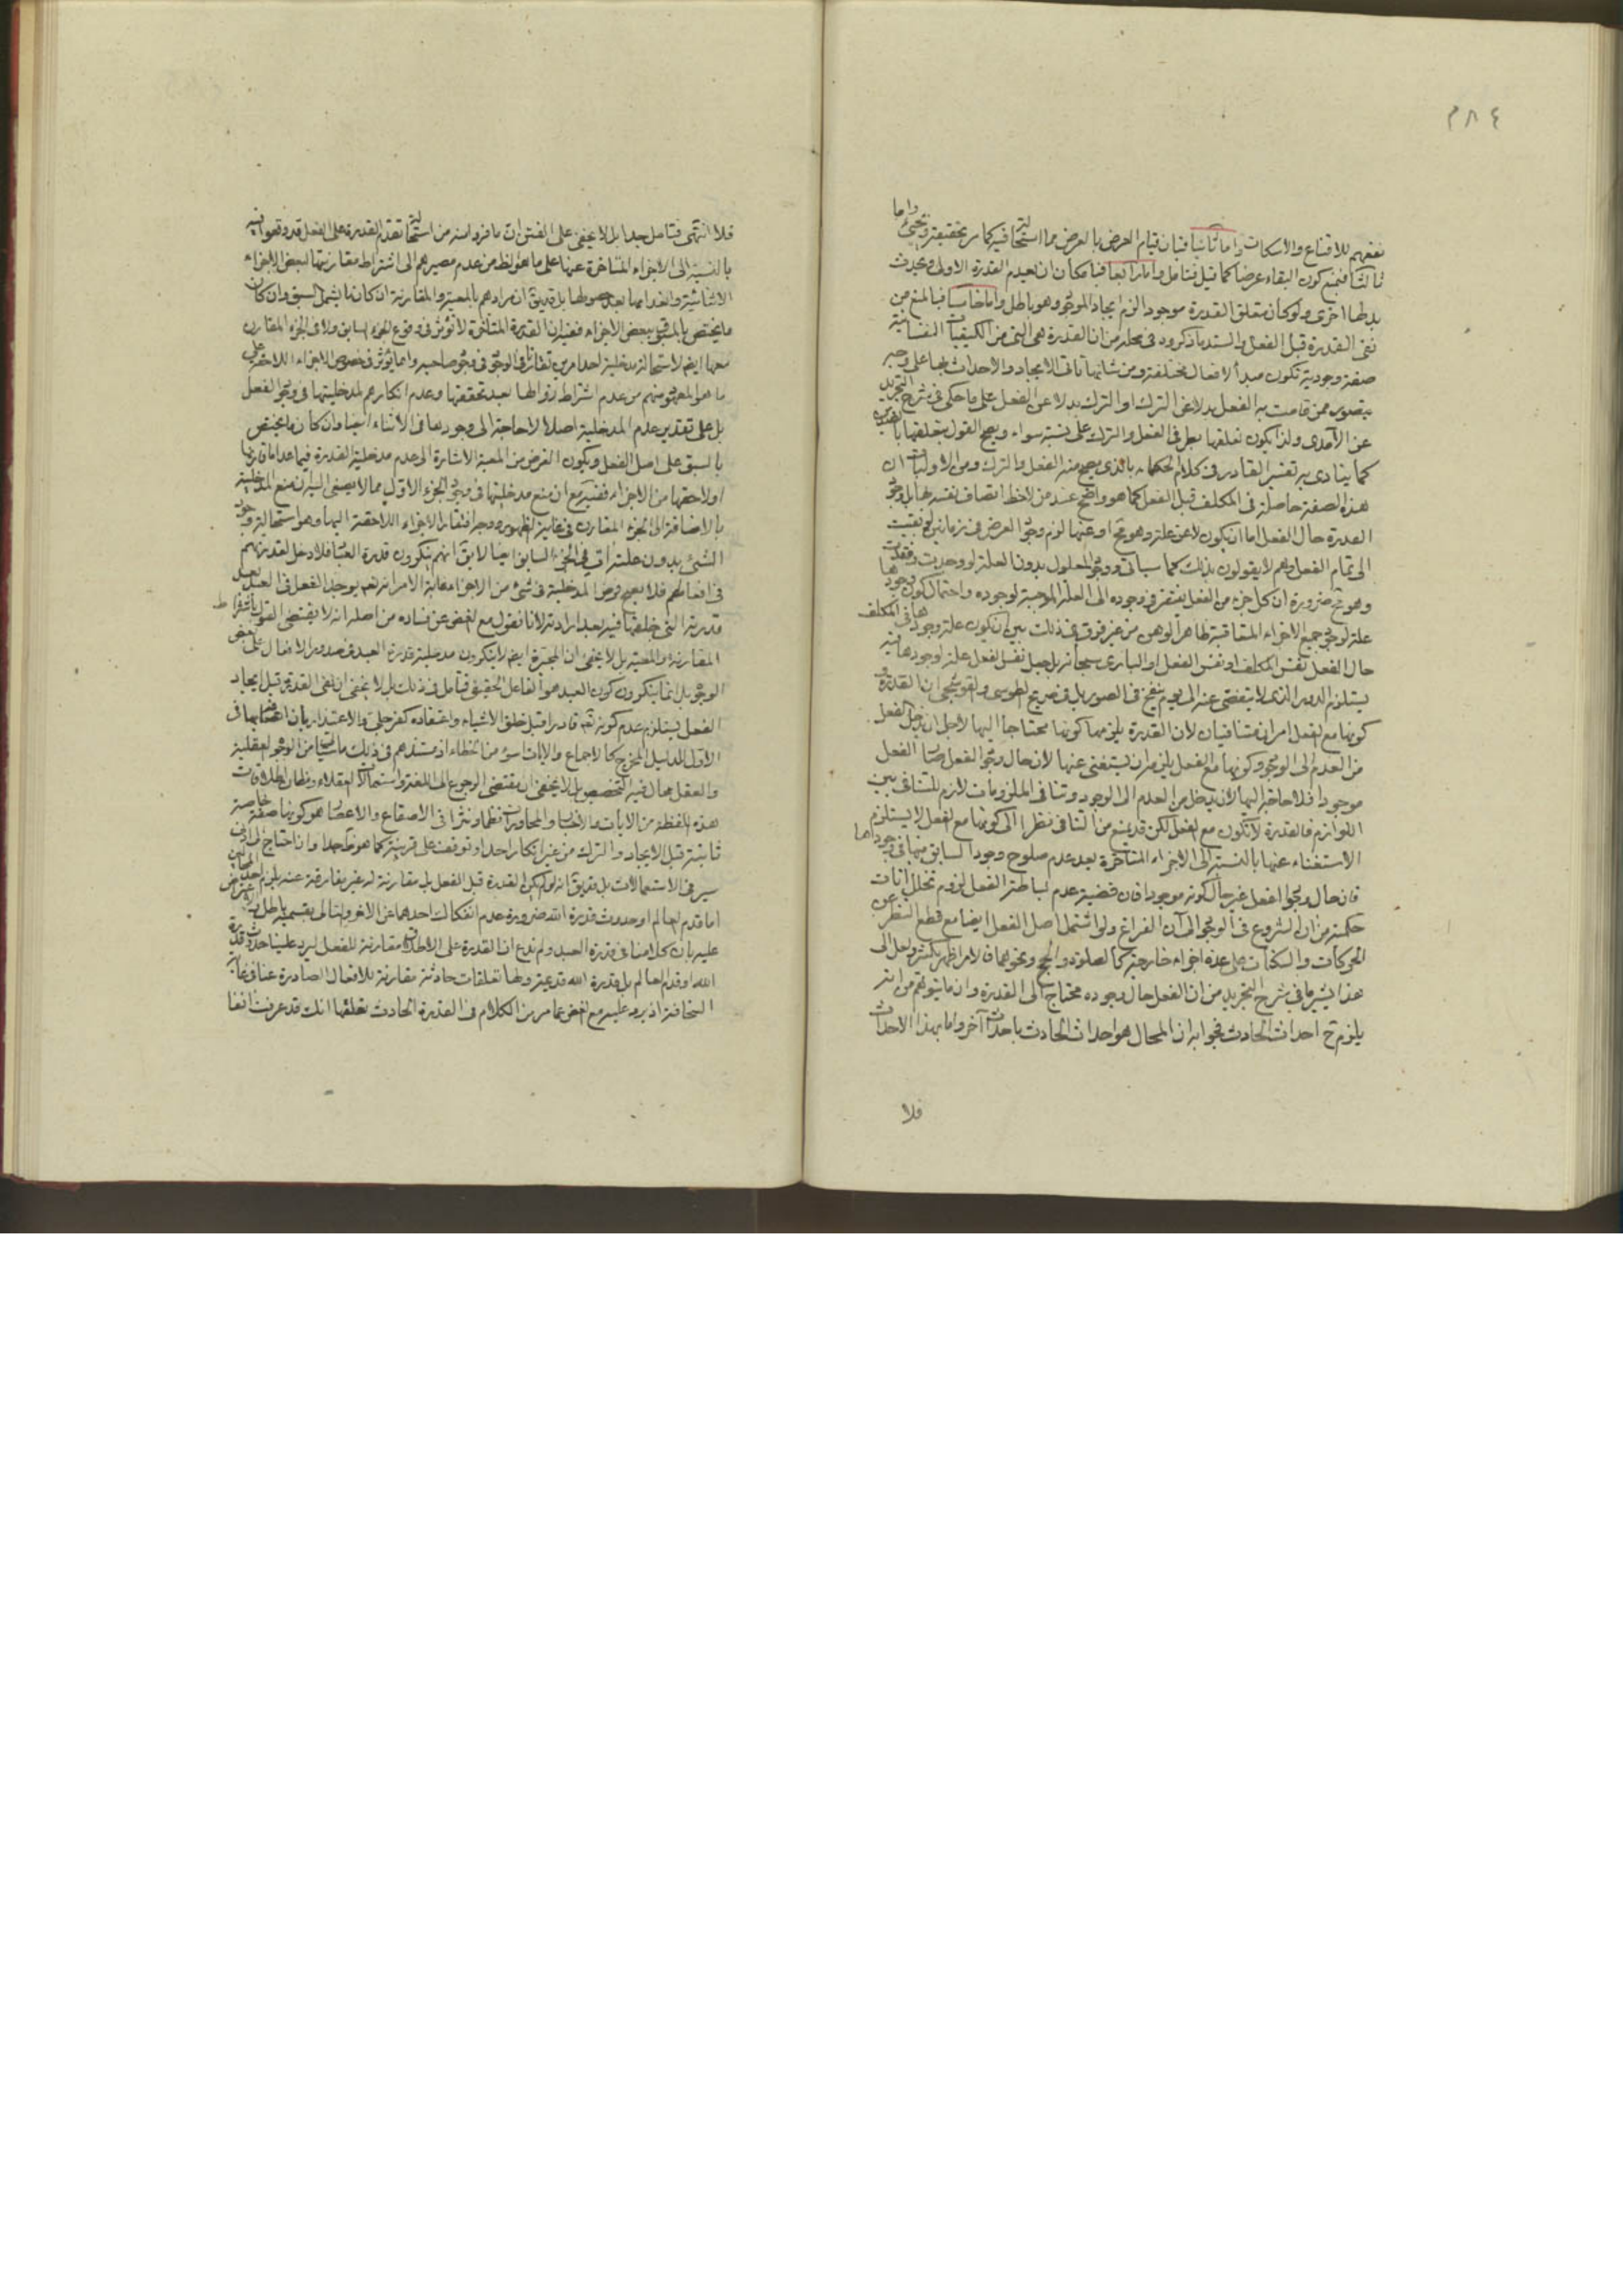 ٣٨٤
نفعهم للاقناع والاسكات واما ثانيا فبان قيام العرض بالعرض مما استحالته فيه كما مر تحقيقه ويجئ واما
ثالثا فبمنع كون البقاء عرضا كما قيل فتامل واما رابعا فبامكان ان يعدم القدرة الاولى ويحدث
بدلها اخرى ولو كان متعلق القدرة موجودا لزم ايجاد الموجود وهو باطل واما خامسا فبالمنع من
نفى القدرة قبل الفعل والسند ما ذكروه فى محله من ان القدرة هى التى من الكيفيات النفسانية
صفة وجودية تكون مبدأ لافعال مختلفة ومن شانها تاتى الايجاد والاحداث بها على وجه
يتصور ممن قامت به الفعل بدلا عن الترك او الترك بدلا عن الفعل على ما حكى فى شرح التجريد
عن الآمدى ولذا يكون تعلقها بطرفى الفعل والترك على نسبة سواء ويصح القول بتعلقها بالضدين
كما ينادى به تفسير القادر فى كلام الحكماء بالذى يصح منه الفعل والترك ومن الاوليات ان
هذه الصفة حاصلة فى المكلف قبل الفعل كما هو واضح عند من لاحظ اتصاف نفسه بها بل وجود
القدرة حال الفعل اما ان يكون لا عن علة وهو مح او عنها لزم وجود العرض فى زمانين لو بقيت
الى تمام الفعل وهم لا يقولون بذلك كما سياتى ووجود المعلول بدون العلة لو وجدت وفقدت
وهو مح ضرورة ان كل جزء من الفعل يفتقر فى وجوده الى العلة الموجبة لوجوده واحتمال كون وجودها
علة لوجود جميع الاجزاء المتعاقبة ظاهر الوهن من غير فرق فى ذلك بين ان يكون علة وجودها فى المكلف
حال الفعل نفس المكلف او نفس الفعل او البارى سبحانه بل جعل نفس الفعل علة لوجودها فيه
يستلزم الدور الذى لا يتفصى عنه الى يوم ينفخ فى الصور بل فى صريح الطوسى والقوشجى ان القدرة و
كونها مع الفعل امران متنافيان لان القدرة يلزمها كونها محتاجا اليها لاجل ان يدخل الفعل
من العدم الى الوجود وكونها مع الفعل يلزمه ان يستغنى عنها لان حال وجود الفعل صار الفعل
موجودا فلا حاجة اليها لان يدخل من العدم الى الوجود وتنافى الملزومات لازم للتنافى بين
اللوازم فالقدرة لا تكون مع الفعل لكن قد يمنع من التنافى نظرا الى كونها مع الفعل لا يستلزم
الاستغناء عنها بالنسبة الى الاجزاء المتاخرة بعد عدم صلوح وجود السابق منها فى وجودها
فان حال وجود الفعل غير حال كونه موجودا فان قضية عدم بساطة الفعل لزوم تخلل انات
حكمية من ان الشروع فى الوجود الى آن الفراغ ولو اشتمل اصل الفعل ايضا مع قطع النظر عن
الحركات والسكنات على عدة اجزاء خارجية كالصلوة والحج ونحوهما فالامر اظهر بكثير ولعل الى
هذا يشير ما فى شرح التجريد من ان الفعل حال وجوده محتاج الى القدرة وان ما يتوهم من انه
يلزم ح احداث الحادث فجوابه ان المحال هو احداث الحادث باحداث آخر واما بهذا الاحداث
فلا
فلا انتهى فتامل جيدا بل لا يخفى على الفتى ان ما فروا منه من استحالة تقدم القدرة على الفعل قد وقعوا فيه
بالنسبة الى الاجزاء المتاخرة عنها على ما هو الظ من عدم مصيرهم الى اشتراط مقارنتها لبعض الاجزاء
الاثنائية وانعدامها بعد حصولها بل قد يق ان مرادهم بالمعية والمقارنة ان كان ما يشمل السبق وان كان
ما يختص بالمسبوق ببعض الاجزاء ففيه ان القدرة المتاخرة لا تؤثر فى وقوع الجزء السابق ولا فى الجزء المقارن
معها ايضا لاستحالة مدخلية احد امرين تقارنا فى الوجود فى وجود صاحبه وانما يؤثر فى خصوص الاجزاء اللاحقة على
ما هو المعهود منهم من عدم اشتراط زوالها بعد تحققها وعدم انكارهم لمدخليتها فى وجود الفعل
بل على تقدير عدم المدخلية اصلا لا حاجة الى وجودها فى الاثناء ايضا وان كان ما يختص
بالسبق على اصل الفعل ويكون الغرض من المعية الاشارة الى عدم مدخلية القدرة فيما عدا ما قارنها
او لاحقها من الاجزاء ففيه مع ان منع مدخليتها فى وجود الجزء الاول مما لا يصغى اليه ان منع المدخلية
بالاضافة الى الجزء المقارن فى غاية الظهور ووجه افتقار الاجزاء اللاحقة اليها وهو استحالة وجود
الشئ بدون علته آت فى الجزء السابق ايضا لا يق انهم ينكرون قدرة العباد فلا دخل لقدرتهم
فى افعالهم فلا يصح فرض المدخلية فى شئ من الاجزاء غاية الامر انه تعم يوجد الفعل فى العبد بعد
قدرته التى خلقها فيه بعد ارادته لانا نقول مع الغض عن فساده من اصله انه لا يقتضى القول باشتراط
المقارنة والمعية بل لا يخفى ان المجبرة ايضا لا ينكرون مدخلية قدرة العبد فى صدور الافعال على بعض
الوجوه بل انما ينكرون كون العبد هو الفاعل الحقيقى فتامل فى ذلك بل لا يخفى ان نفى القدرة قبل ايجاد
الفعل يستلزم عدم كونه تعم قادرا قبل خلق الاشياء واعتقاده كفر جلى والاعتذار بان اختصاصها فى
الاول للدليل المخرج كالاجماع والايات سوء من الخطاء اذ مستندهم فى ذلك ما سياتى من الوجوه العقلية
والعقل محال فيه التخصيص بل لا يخفى ان مقتضى الرجوع الى اللغة واستعمالات العقلاء ومظان اطلاقات
هذه اللفظة من الايات والاخبار والمحاورات نظما ونثرا فى الاصقاع والاعصار هو كونها صفة خاصة
ثابتة قبل الايجاد والترك من غير انكار احد او توقف على قرينة كما هو ظ جدا وان احتاج الى ادنى
سير فى الاستعمالات بل قد يق انه لو لم يكن القدرة قبل الفعل بل مقارنة له غير مفارقة عنه يلزم احد المحالين
اما قدم العالم او حدوث قدرة الله ضرورة عدم انفكاك احدهما عن الاخر والتالى بقسميه باطل واعترض
عليه بان كلامنا فى قدرة العبد ولم ندع ان القدرة على الاطلاق مقارنة للفعل ليرد علينا حدوث قدرة
الله او قدم العالم بل قدرة الله قديمة ولها تعلقات حادثة مقارنة للافعال الصادرة عنا فى غاية
السخافة اذ يرد عليه مع الغض عما مر من الكلام فى القدرة الحادث تعلقها انك قد عرفت انفا